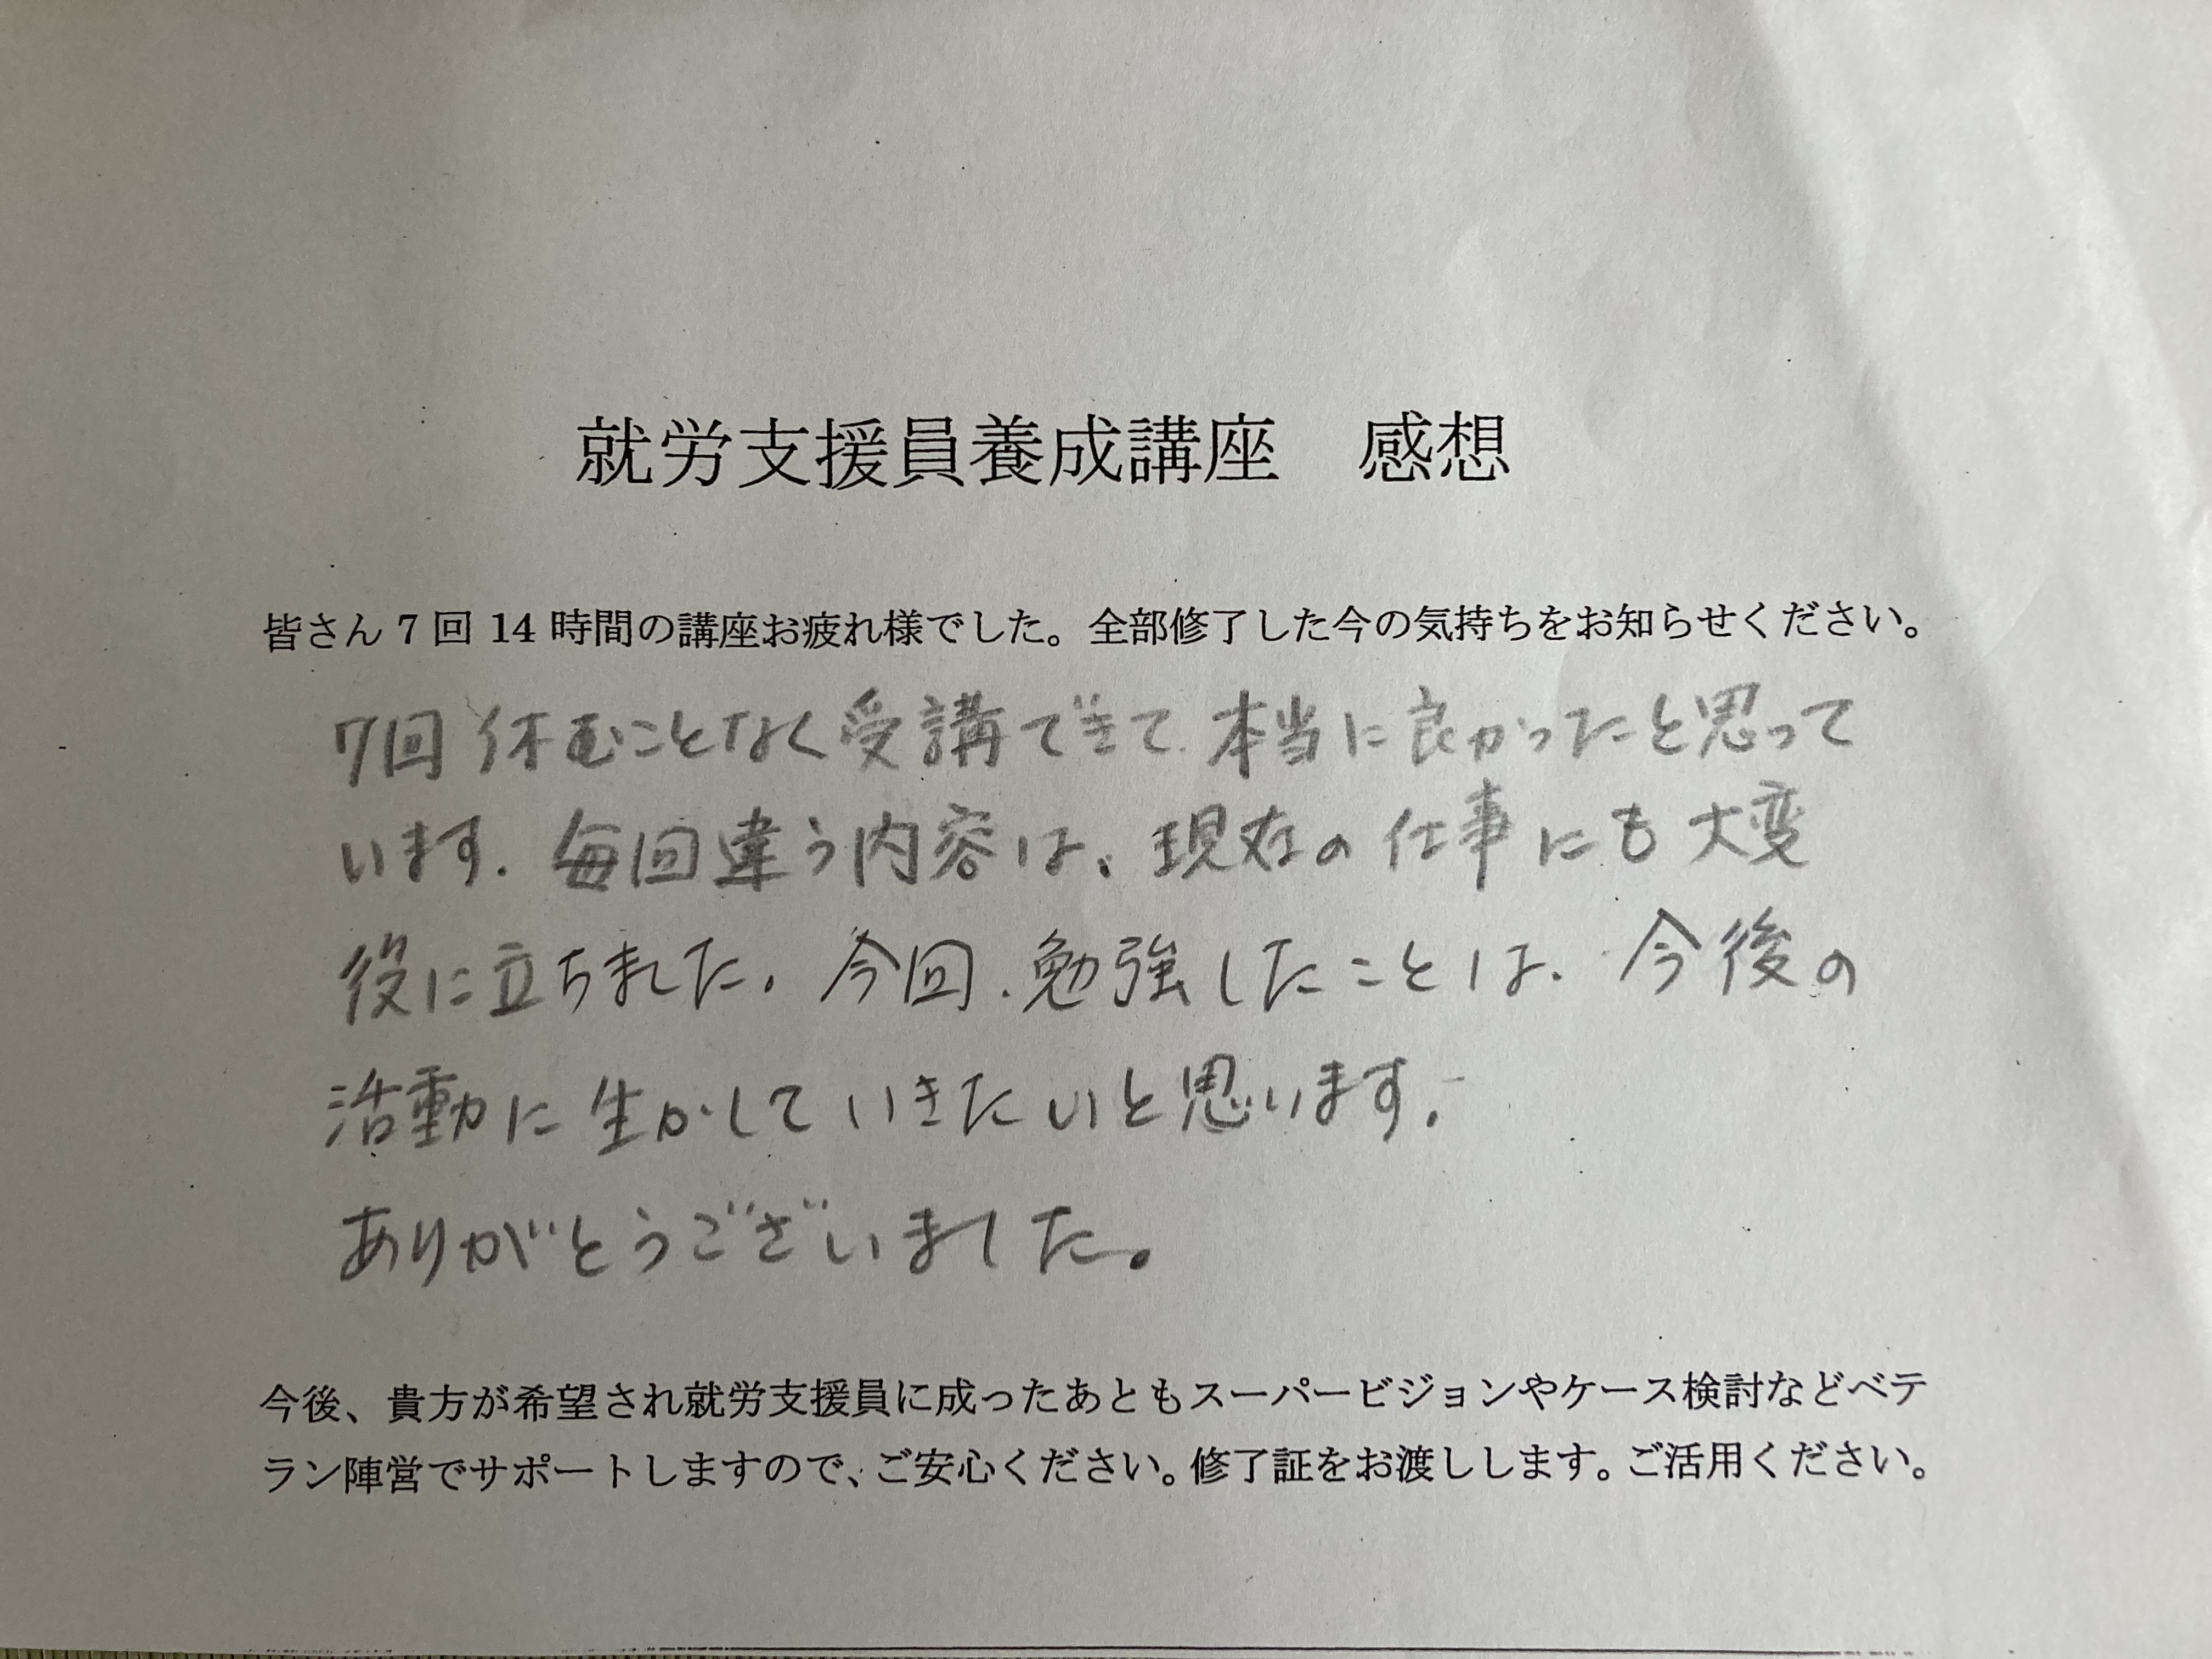 就労支援員養成講座　感想
皆さん7回14時間の講座お疲れ様でした。全部修了した今の気持ちをお知らせください。
7回休むことなく受講できて、本当に良かったと思って
います。毎回違う内容は、現在の仕事にも大変
役に立ちました。今回、勉強したことは、今後の
活動に生かしていきたいと思います。
ありがとうございました。
今後、貴方が希望され就労支援員に成ったあともスーパービジョンやケース検討などベテ
ラン陣営でサポートしますので、ご安心ください。修了証をお渡しします。ご活用ください。